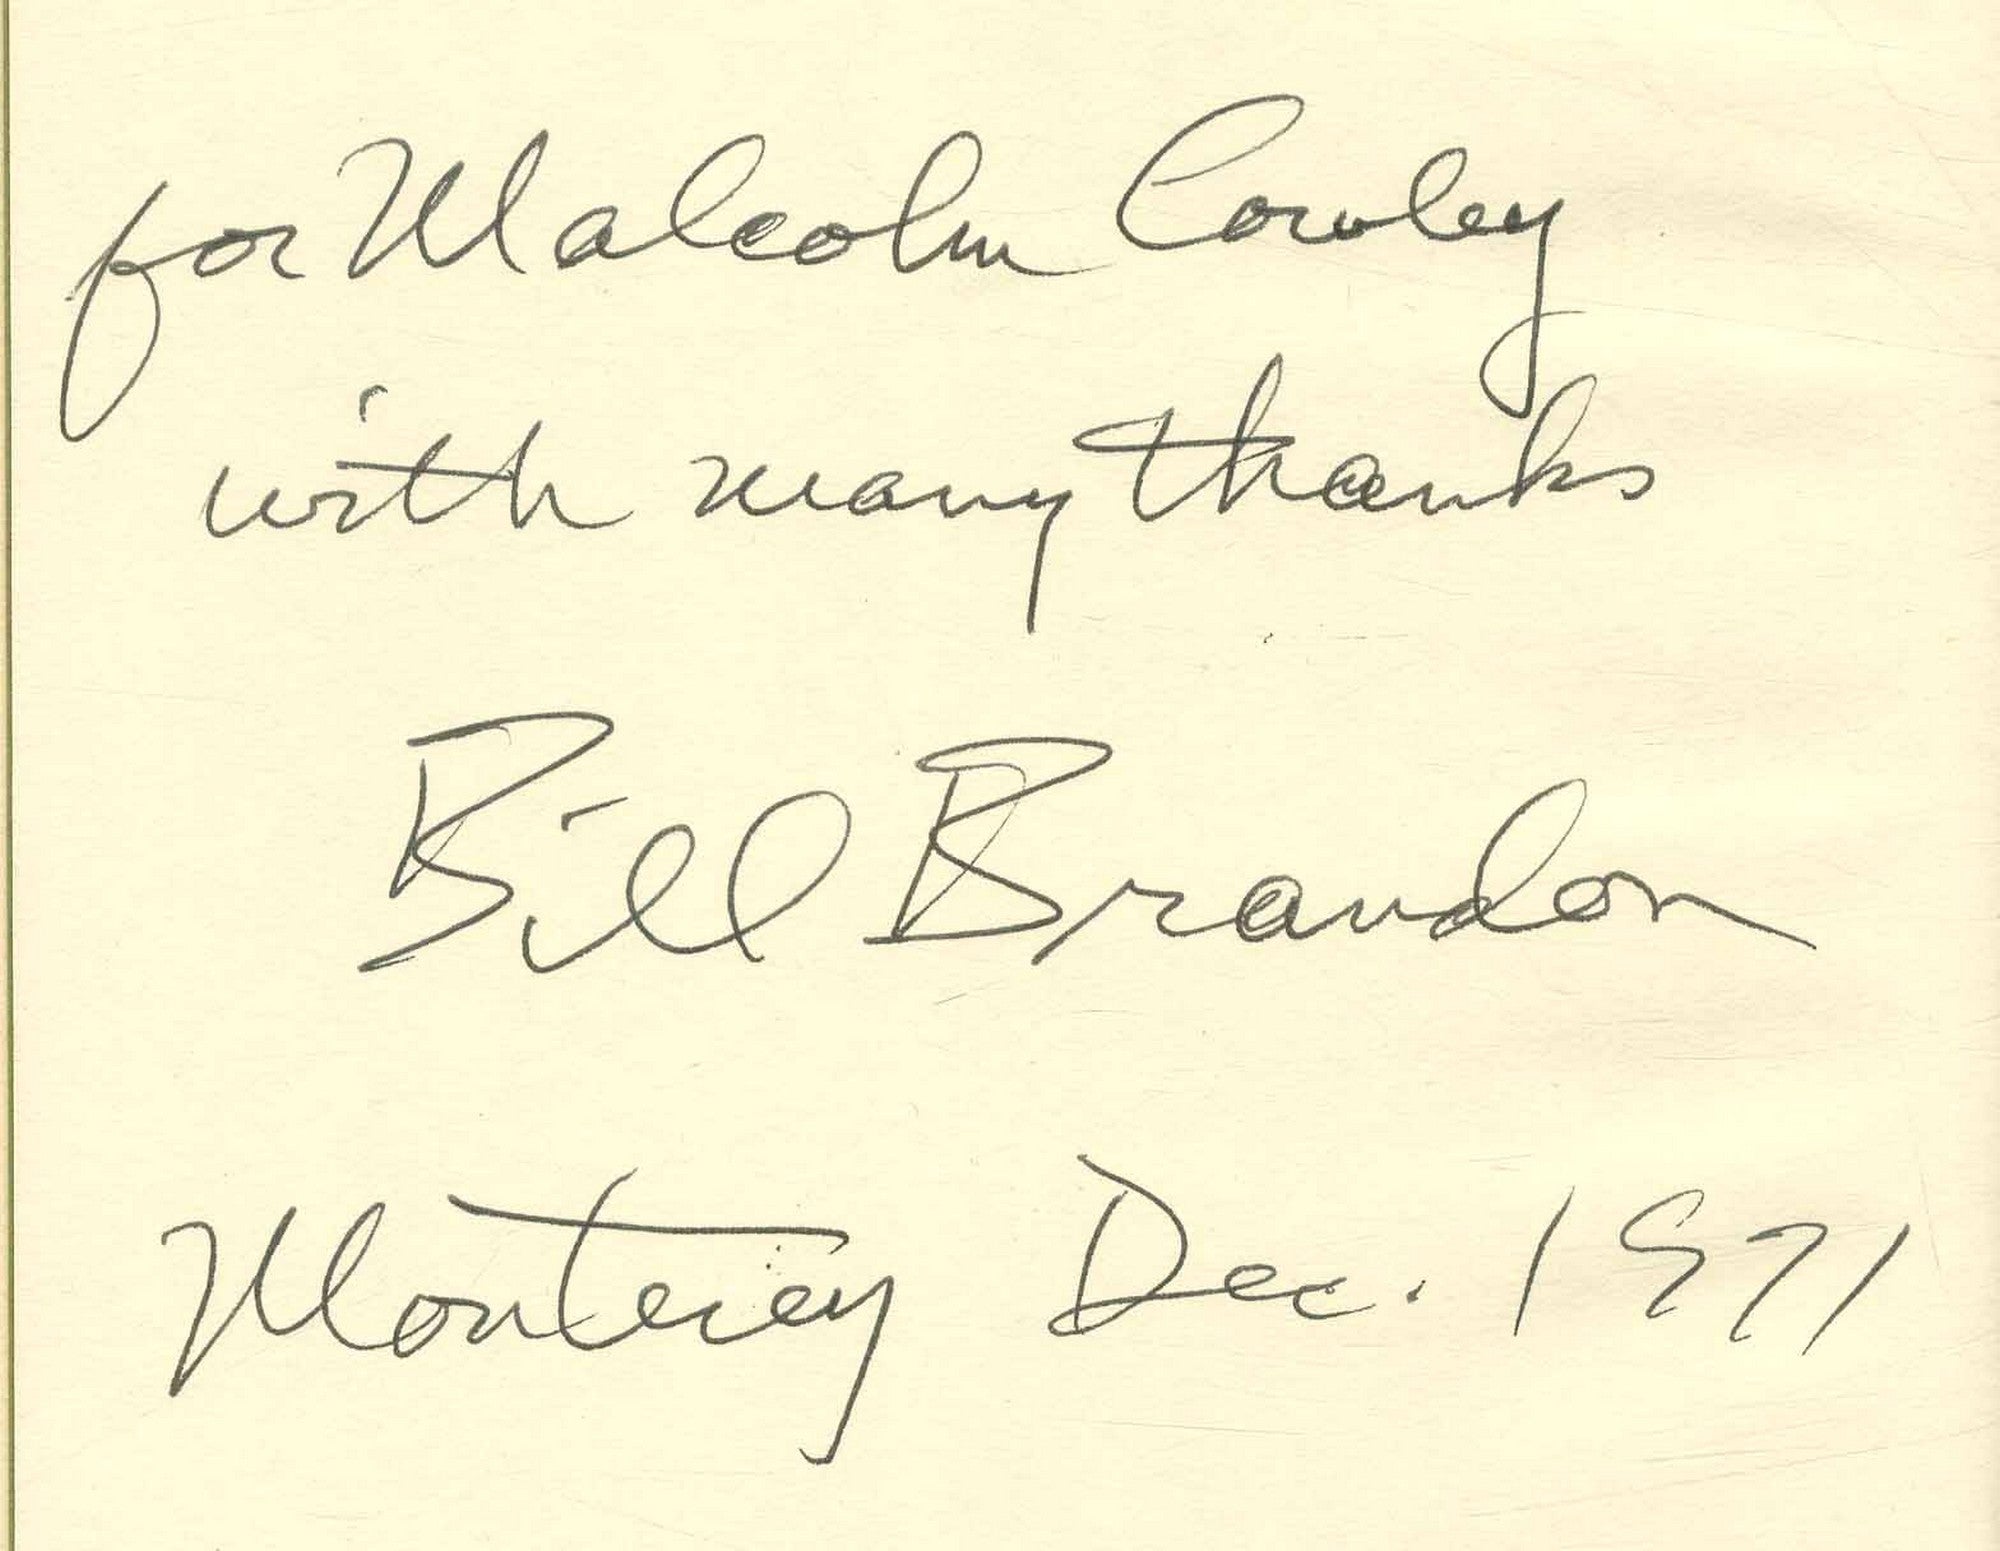 for Malcolm Cowley
with many thanks
Bill Brandon
Monterey Dec. 1971